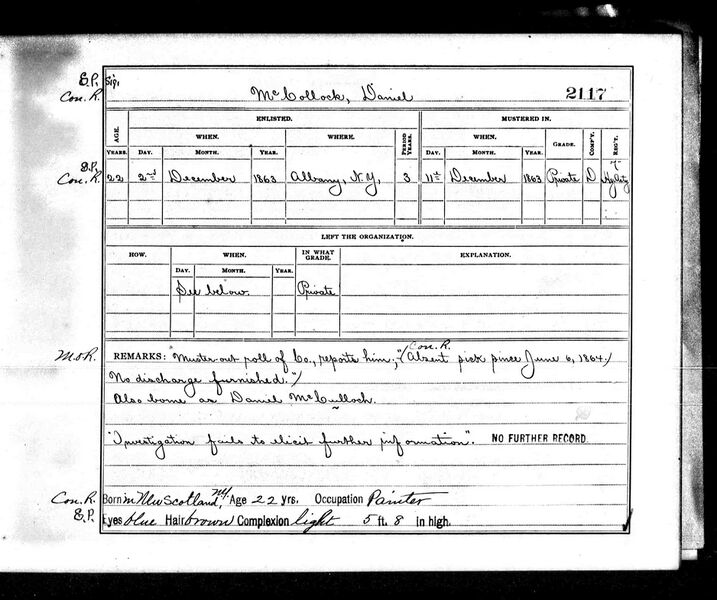 E.P. Sig.
Con. R. McCollock, Daniel 2117
AGE. ENLISTED. MUSTERED IN.
WHEN. WHERE. PERIOD YEARS. WHEN. GRADE. COMP'Y. REG'T.
YEARS. DAY. MONTH. YEAR. DAY. MONTH. YEAR.
E.P. 7
Con. R. 22 2nd December 1863 Albany, N.Y. 3 11th December 1863 Private D Hy Arty
LEFT THE ORGANIZATION.
HOW. WHEN. IN WHAT GRADE. EXPLANATION.
DAY. MONTH. YEAR.
See below. Private
Con. R.
M.o.R. REMARKS: Muster-out roll of Co., reports him; "(Absent sick since June 6, 1864.)
No discharge furnished.")
Also borne as Daniel McCulloch.
"Investigation fails to elicit further information". NO FURTHER RECORD
Con. R. Born in New Scotland, NY Age 22 yrs. Occupation Painter
E.P. Eyes blue Hair brown Complexion light 5 ft. 8 in high.